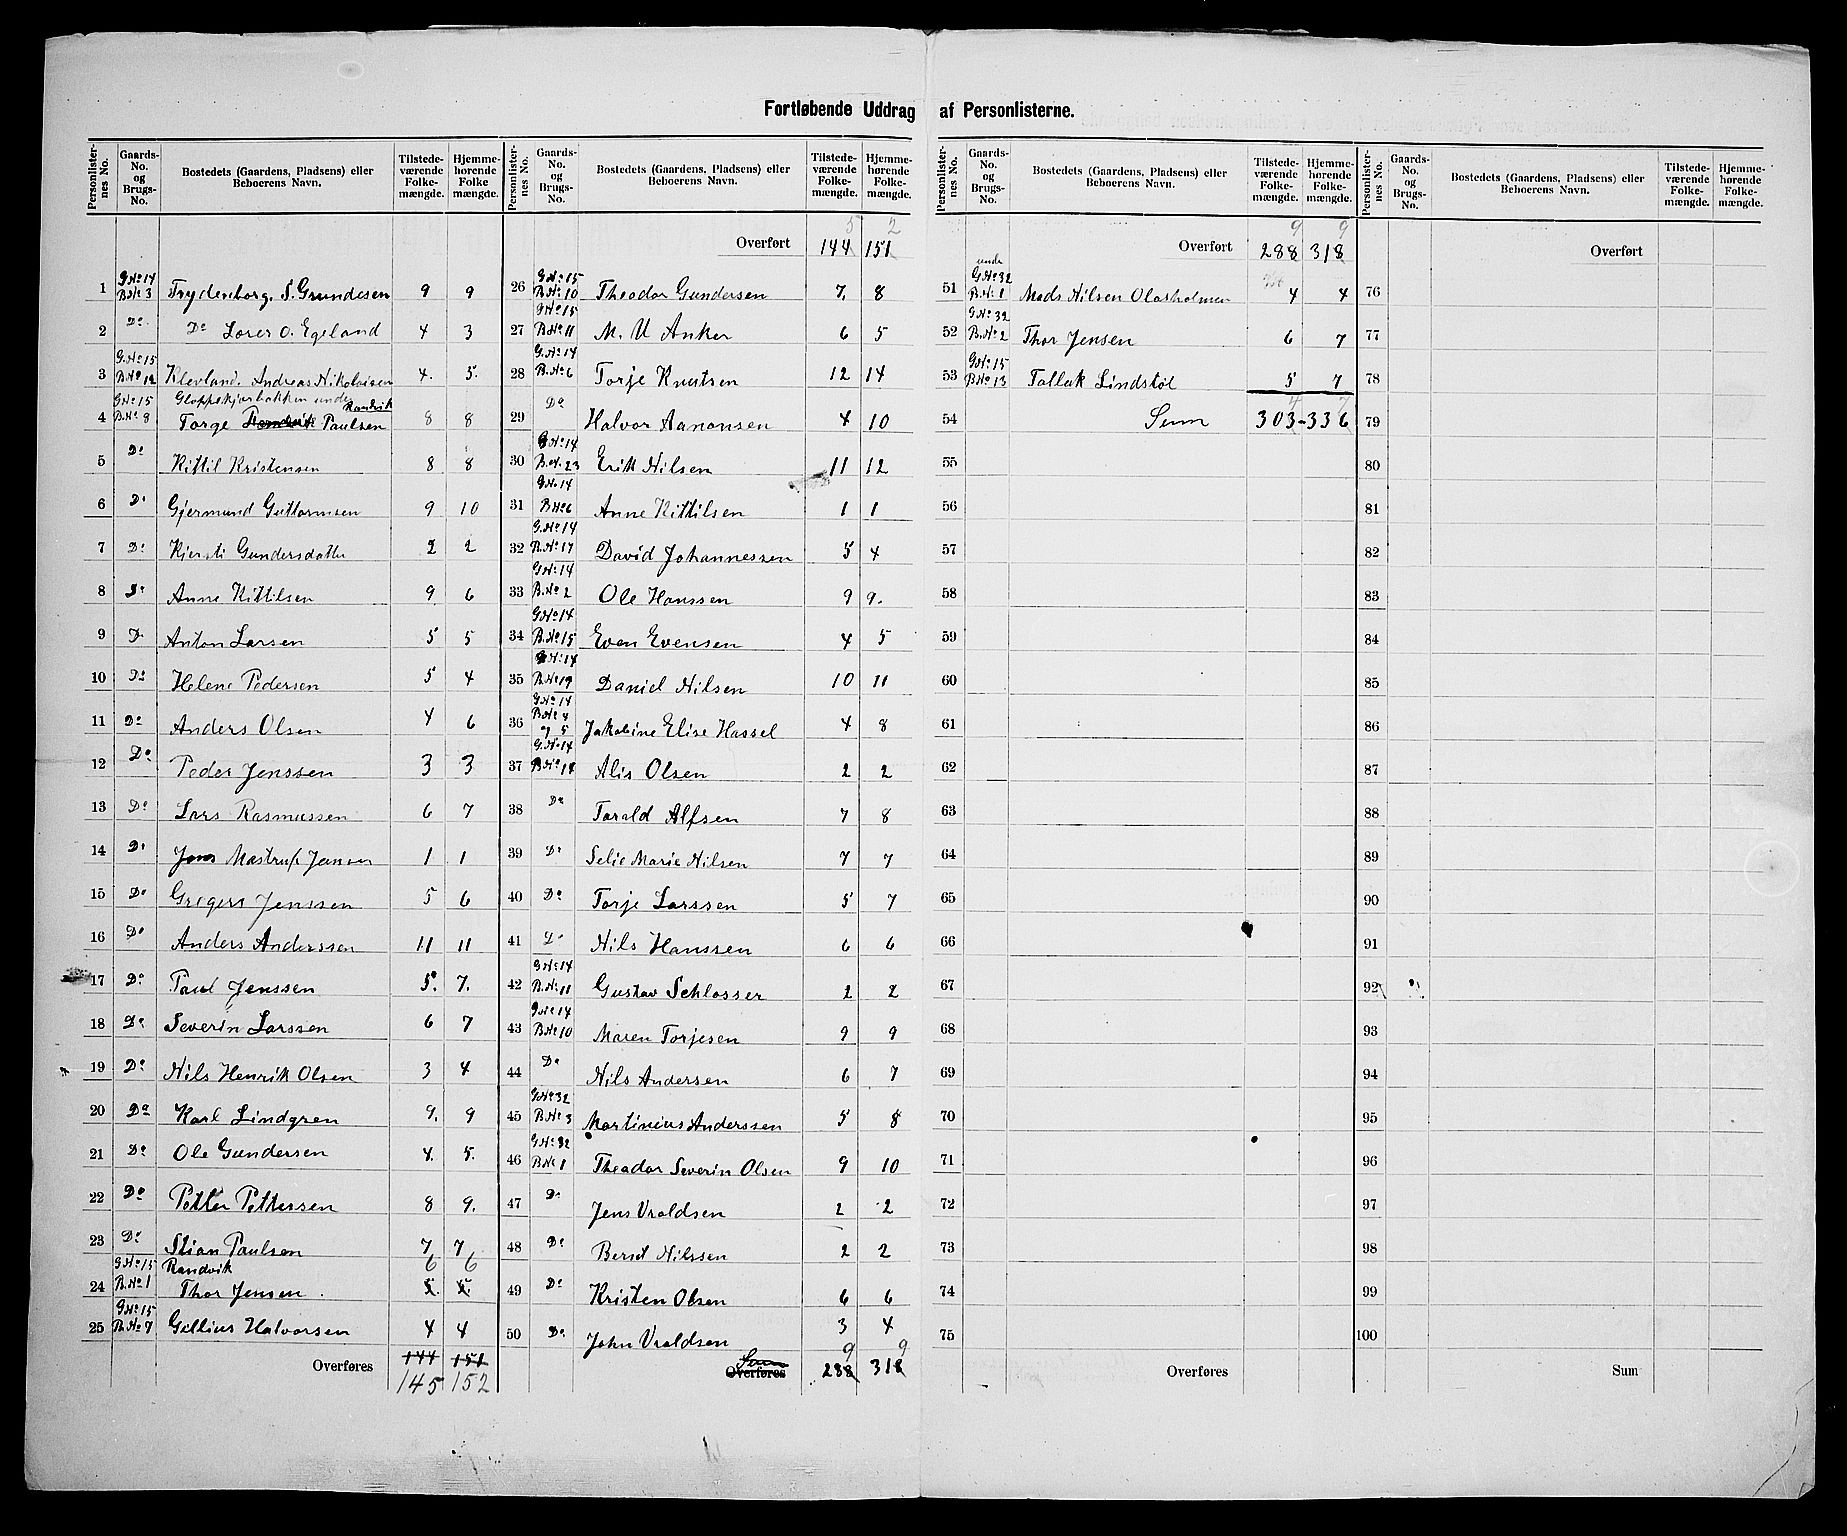 Fortløbende Uddrag af Personlisterne.
Personlister-nes No. | Gaards-No. og Brugs-No. | Bostedets (Gaardens, Pladsens) eller Beboerens Navn. | Tilstede-værende Folke-mængde. | Hjemme-hørende Folke-mængde.
1 G.No 14 B.No 3 Frydenborg. S. Grundesen 9 9
2 Do Do Lorer O. Egeland 4 3
3 G.No 15 B.No 12 Klevland. Andreas Nikolaisen 4. 5.
Gloppekjærbakken under Randvik
4 G.No 15 B.No 8 Torge Paulsen 8 8
5 Do Kittil Kristensen 8 8
6 Do Gjermund Guttormsen 9 10
7 Do Kjersti Gundersdatter 2 2
8 Do Anne Kittilsen 9 6
9 Do Anton Larsen 5 5
10 Do Helene Pedersen 5 4
11 Do Anders Olsen 4 6
12 Do Peder Jenssen 3 3
13 Do Lars Rasmussen 6 7
14 Do Jens Mastrup Jensen 1 1
15 Do Gregers Jenssen 5 6
16 Do Anders Anderssen 11 11
17 Do Paul Jenssen 5. 7.
18 Do Severin Larssen 6 7
19 Do Nils Henrik Olsen 3 4
20 Do Karl Lindgren 9. 9
21 Do Ole Gundersen 4. 5.
22 Do Petter Pettersen 8 9.
23 Do Stian Paulsen 7 7
Randvik 6 6
24 G.No 15 B.No 1 Thor Jensen . 5. 5.
25 G.No 15 B.No 7 Gellius Halvorsen 4 4
Overføres 144 151
145 152
Personlister-nes No. | Gaards-No. og Brugs-No. | Bostedets (Gaardens, Pladsens) eller Beboerens Navn. | Tilstede-værende Folke-mængde. | Hjemme-hørende Folke-mængde.
5 2
Overført 144 151
26 G.No 15 B.No 10 Theodor Gundersen 7. 8
27 G.No 15 B.No 11 M. U Anker 6 5
28 G.No 14 B.No 6 Torje Knutsen 12 14
29 Do Halvor Aanonsen 4 10
30 G.No 14 B.No 23 Erik Nilsen 11 12
31 G.No 14 B.No 6 Anne Kittilsen 1 1
32 G.No 14 B.No 17 David Johannessen 5 4
33 G.No 14 B.No 2 Ole Hanssen 9 9.
34 G.No 14 B.No 15 Even Evensen 4 5
35 G.No 14 B.No 19 Daniel Nilsen 10 11
36 G.No 14 B.No 4 og 5 Jakobine Elise Hassel 4 8
37 G.No 14 B.No 18 Alis Olsen 2 2
38 Do Tarald Alfsen 7 8
39 Do Selie Marie Nilsen 7 7
40 Do Torje Larssen 5 7
41 Do Nils Hanssen 6 6
42 G.No 14 B.No 11 Gustav Schlosser 2 2
43 G.No 14 B.No 10 Maren Torjesen 9 9
44 Do Nils Andersen 6 7
45 G.No 32 B.No 3 Martinius Anderssen 5 8
46 G.No 32 B.No 1 Theodor Severin Olsen 9 10
47 Do Jens Vraldsen 2 2
48 Do Bernt Nilssen 2 2
49 Do Kristen Olsen 6 6
50 Do John Vraldsen 3 4
9 9
Sum
Overføres 288 318
Personlister-nes No. | Gaards-No. og Brugs-No. | Bostedets (Gaardens, Pladsens) eller Beboerens Navn. | Tilstede-værende Folke-mængde. | Hjemme-hørende Folke-mængde.
9 9
Overført 288 318
51 unde G.No 32 B.No 1 Mads Nilsen Olasholmen 4 4
52 G.No 32 B.No 2 Thor Jensen 6 7
53 G.No 15 B.No 13 Tallak Lindstøl 5 7
4 7
54 Sum 303 - 336
55
56
57
58
59
60
61
62
63
64
65
66
67
68
69
70
71
72
73
74
75
Overføres
Personlister-nes No. | Gaards-No. og Brugs-No. | Bostedets (Gaardens, Pladsens) eller Beboerens Navn. | Tilstede-værende Folke-mængde. | Hjemme-hørende Folke-mængde.
Overført
76
77
78
79
80
81
82
83
84
85
86
87
88
89
90
91
92
93
94
95
96
97
98
99
100
Sum